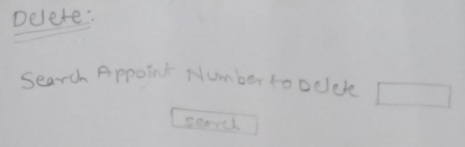 Delete:
Search Appoint Number to Delete
search